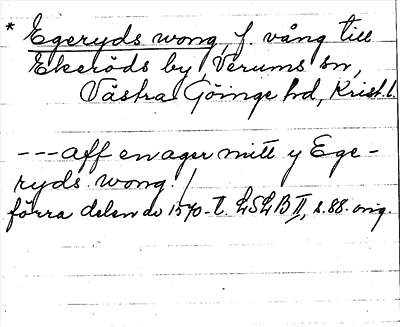 * Egeryds wong, f. vång till
Ekeröds by, Verums sn,
Västra Göinge hd, Krist. l.
--- aff en ager mitt y Ege-
ryds wong. /
förra delen av 1570-t. LSLB II, s. 88. orig.